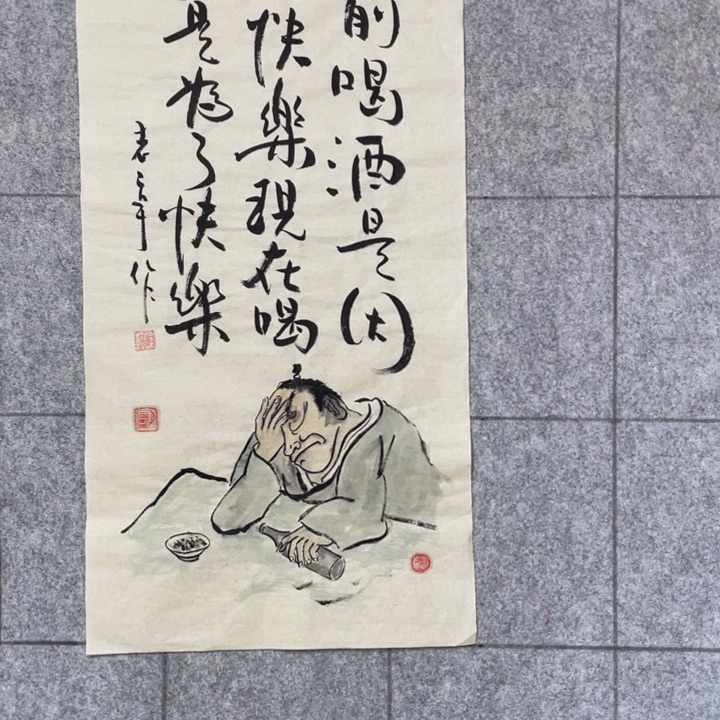 前喝酒是因
快樂現在喝
是為了快樂
作